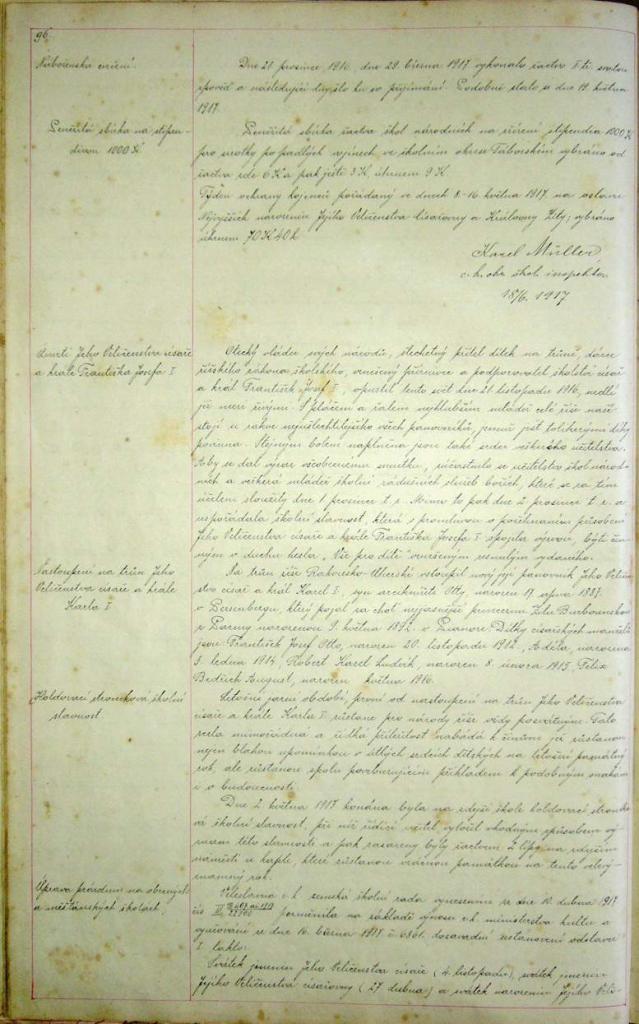 96.
Náboženská cvičení.
Dne 21. prosince 1916, dne 29. března 1917 vykonalo žactvo svatou
zpověď a následující den šlo ku sv. přijímání. Podobně stalo se dne 19. května
1917.
Peněžitá sbírka na stipen-
dium 1000 K
Peněžitá sbírka žactva škol národních na zřízení stipendia 1000 K
pro sirotky po padlých vojínech ve školním okrese Táborském vybráno od
žactva zde 6 K a pak ještě 3 K, úhrnem 9 K.
Týden ochrany kojenců pořádaný ve dnech 8.-16. května 1917 na oslavu
Nejvyšších narozenin Jejího Veličenstva císařovny a Královny Zity; vybráno
úhrnem 70 K 40 h
Karel Müller,
c. k. okr. škol. inspektor
18/6. 1917
Úmrtí Jeho Veličenstva císaře
a krále Františka Josefa I.
Otecký vládce svých národů, šlechetný přítel dítek na trůně, dárce
říšského zákona školského, vznešený příznivec a podporovatel školství císař
a král František Josef I., opustil tento svět dne 21. listopadu 1916, nedlí
již mezi živými. S pláčem a žalem nejhlubším mládež celé říše naší
stojí u rakve nejušlechtilejšího všech panovníků, jemuž jest tolikerými díky
povinna. Stejným bolem naplněna jsou také srdce veškerého učitelstva.
Aby se dal výraz všeobecnému smutku, zúčastnilo se učitelstvo škol národ-
ních a veškerá mládež školní zádušních služeb Božích, které se za tím
účelem sloužily dne 1. prosince t. r. Mimo to pak dne 2. prosince t. r.
uspořádala školní slavnost, která s promluvou o požehnaném působení
Jeho Veličenstva císaře a krále Františka Josefa I. spojila
v duchu hesla, Vše pro dítě vydaného.
Nastoupení na trůn Jeho
Veličenstva císaře a krále
Karla I.
Na trůn říše Rakousko-Uherské vstoupil nový její panovník Jeho Veličen-
stvo císař a král Karel I., syn arciknížete Otty, narozen 17. srpna 1887.
v Persenbergu, který pojal za choť nejjasnější princeznu Zitu Bourbonskou
z Parmy narozenou 9. května 1892. v Pianore. Dítky císařských manželů
jsou: František Josef Otto, narozen 20. listopadu 1912, Adéla, narozena
3. ledna 1914, Robert Karel Ludvík, narozen 8. února 1915, Felix
Bedřich August, narozen května 1916.
Holdovací stromková školní
slavnost
Letošní jarní období, první od nastoupení na trůn Jeho Veličenstva
císaře a krále Karla I., zůstane pro národy říše vždy posvátným. Tato
zcela mimořádná a řídká příležitost nabádá k činům, jež zůstanou
nejen blahou upomínkou v útlých srdcích dětských na letošní památný
rok, ale zůstanou spolu povzbuzujícím příkladem k podobným snahám
i v budoucnosti.
Dne 2. května 1917 konána byla na zdejší škole holdovací stromko-
vá školní slavnost, při níž řídící učitel vyložil vhodným způsobem vý-
znam této slavnosti a pak zasazeny byly žactvem 2 lípy na zdejším
náměstí u kaple, které zůstanou vzácnou památkou na tento velevý-
znamný rok.
Úprava prázdnin na obecných
a měšťanských školách
Veleslavná c. k. zemská školní rada vynesením ze dne 10. dubna 1917
čís. pozměnila na základě výnosu c. k. ministerstva kultu a
vyučování ze dne 16. března 1917 č. 6861. dosavadní ustanovení odstavce
I. takto:
Svátek jmenin Jeho Veličenstva císaře (4. listopadu), svátek jmenin
Jejího Veličenstva císařovny (27. dubna) a svátek narozenin Jejího Veli-